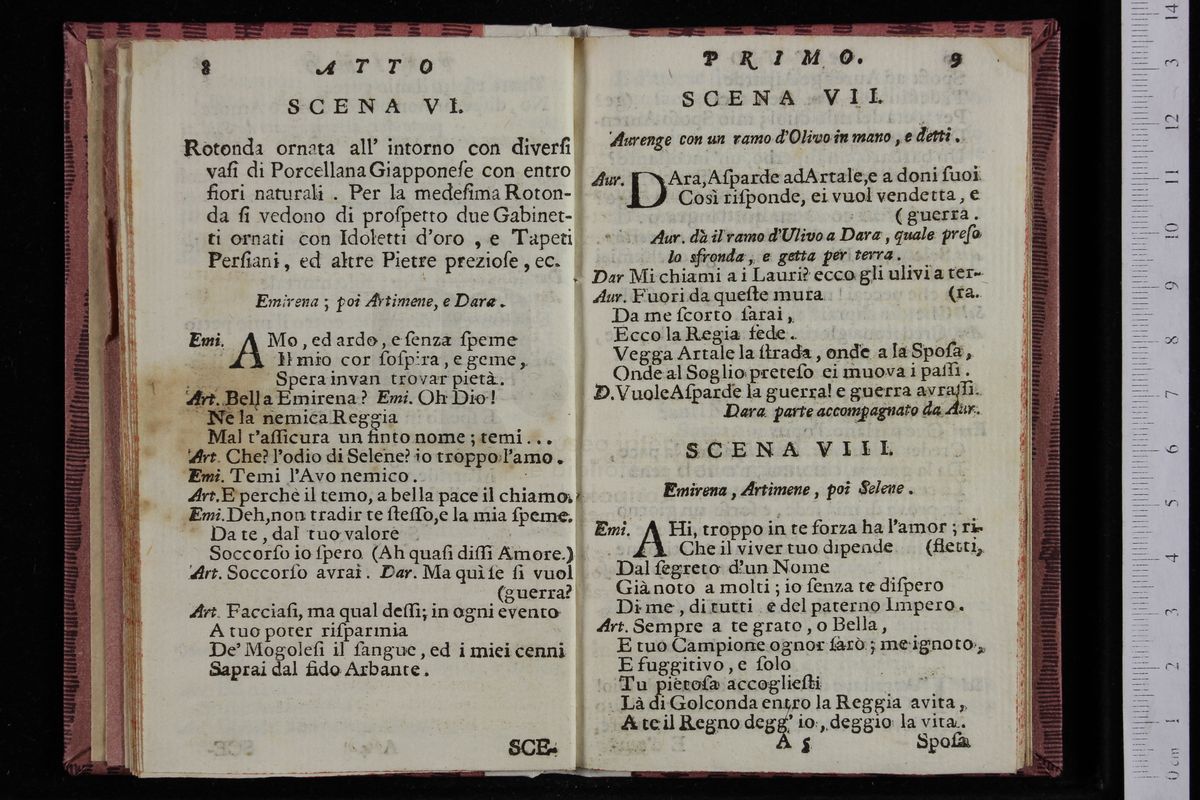 8 ATTO
SCENA VI.
Rotonda ornata all' intorno con diverſi
vaſi di Porcellana Giapponeſe con entro
fiori naturali . Per la medeſima Roton-
da ſi vedono di proſpetto due Gabinet-
ti ornati con Idoletti d'oro , e Tapeti
Perſiani , ed altre Pietre prezioſe , ec.
Emirena ; poi Artimene, e Dara .
Emi. AMo , ed ardo , e ſenza ſpeme
Il mio cor ſoſpira , e geme ,
Spera invan trovar pietà .
Art. Bella Emirena ? Emi. Oh Dio !
Ne la nemica Reggia
Mal t'aſſicura un finto nome ; temi ...
Art. Che? l'odio di Selene? io troppo l'amo .
Emi. Temi l'Avo nemico .
Art. E perchè il temo, a bella pace il chiamo.
Emi. Deh, non tradir te ſteſſo, e la mia ſpeme.
Da te , dal tuo valore
Soccorſo io ſpero (Ah quaſi diſſi Amore.)
Art. Soccorſo avrai . Dar. Ma quì ſe ſi vuol
(guerra?
Art. Facciaſi, ma qual deſſi; in ogni evento
A tuo poter riſparmia
De' Mogoleſi il ſangue , ed i miei cenni
Saprai dal fido Arbante .
SCE-
PRIMO. 9
SCENA VII.
Aurenge con un ramo d'Olivo in mano , e detti .
Aur. DAra, Aſparde ad Artale, e a doni ſuoi
Così riſponde, ei vuol vendetta, e
(guerra .
Aur. dà il ramo d'Ulivo a Dara , quale preſo
lo sfronda , e getta per terra .
Dar Mi chiami a i Lauri? ecco gli ulivi a ter-
Aur. Fuori da queſte mura (ra.
Da me ſcorto ſarai ,
Ecco la Regia fede .
Vegga Artale la ſtrada , onde a la Spoſa ,
Onde al Soglio preteſo ei muova i paſſi .
D. Vuole Aſparde la guerra! e guerra avraſſi.
Dara parte accompagnato da Aur.
SCENA VIII.
Emirena , Artimene , poi Selene .
Emi. AHi, troppo in te forza ha l'amor ; ri-
Che il viver tuo dipende (fletti,
Dal ſegreto d'un Nome
Già noto a molti ; io ſenza te diſpero
Di me , di tutti e del paterno Impero .
Art. Sempre a te grato , o Bella ,
E tuo Campione ognor ſarò ; me ignoto ,
E fuggitivo , e ſolo
Tu pietoſa accoglieſti
Là di Golconda entro la Reggia avita ,
A te il Regno degg' io , deggio la vita .
A 5 Spoſa
0 cm 1 2 3 4 5 6 7 8 9 10 11 12 3 14